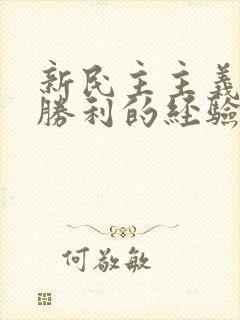 新民主主義
勝利的経驗
何敬敏